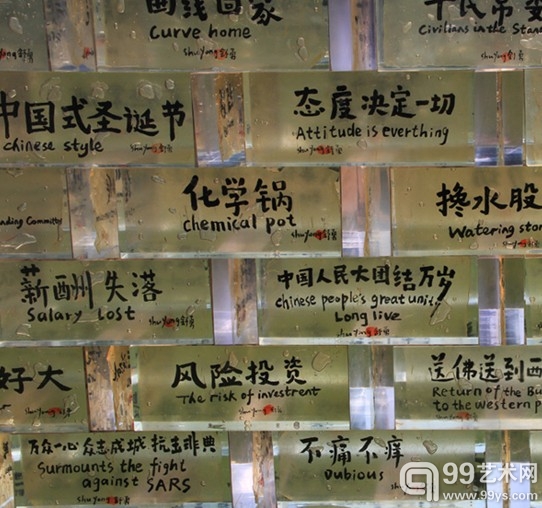 曲线回家
Curve home
shuyong 舒勇
Civilians in the
shuyong 舒勇
中国式圣诞节
chinese style
shuyong 舒勇
态度决定一切
Attitude is everthing
shuyong 舒勇
化学锅
chemical pot
shuyong 舒勇
搀水股
Watering
薪酬失落
Salary Lost
shuyong 舒勇
中国人民大团结万岁
chinese people's great unity
Long live
shuyong 舒勇
好大
shuyong 舒勇
风险投资
The risk of investrent
shuyong 舒勇
送佛送到西
Return of the
to the western
万众一心众志成城抗击非典
Surmounts the fight
against SARS
shuyong 舒勇
不痛不痒
Dubious
shuyong 舒勇
99艺术网
www.99ys.com